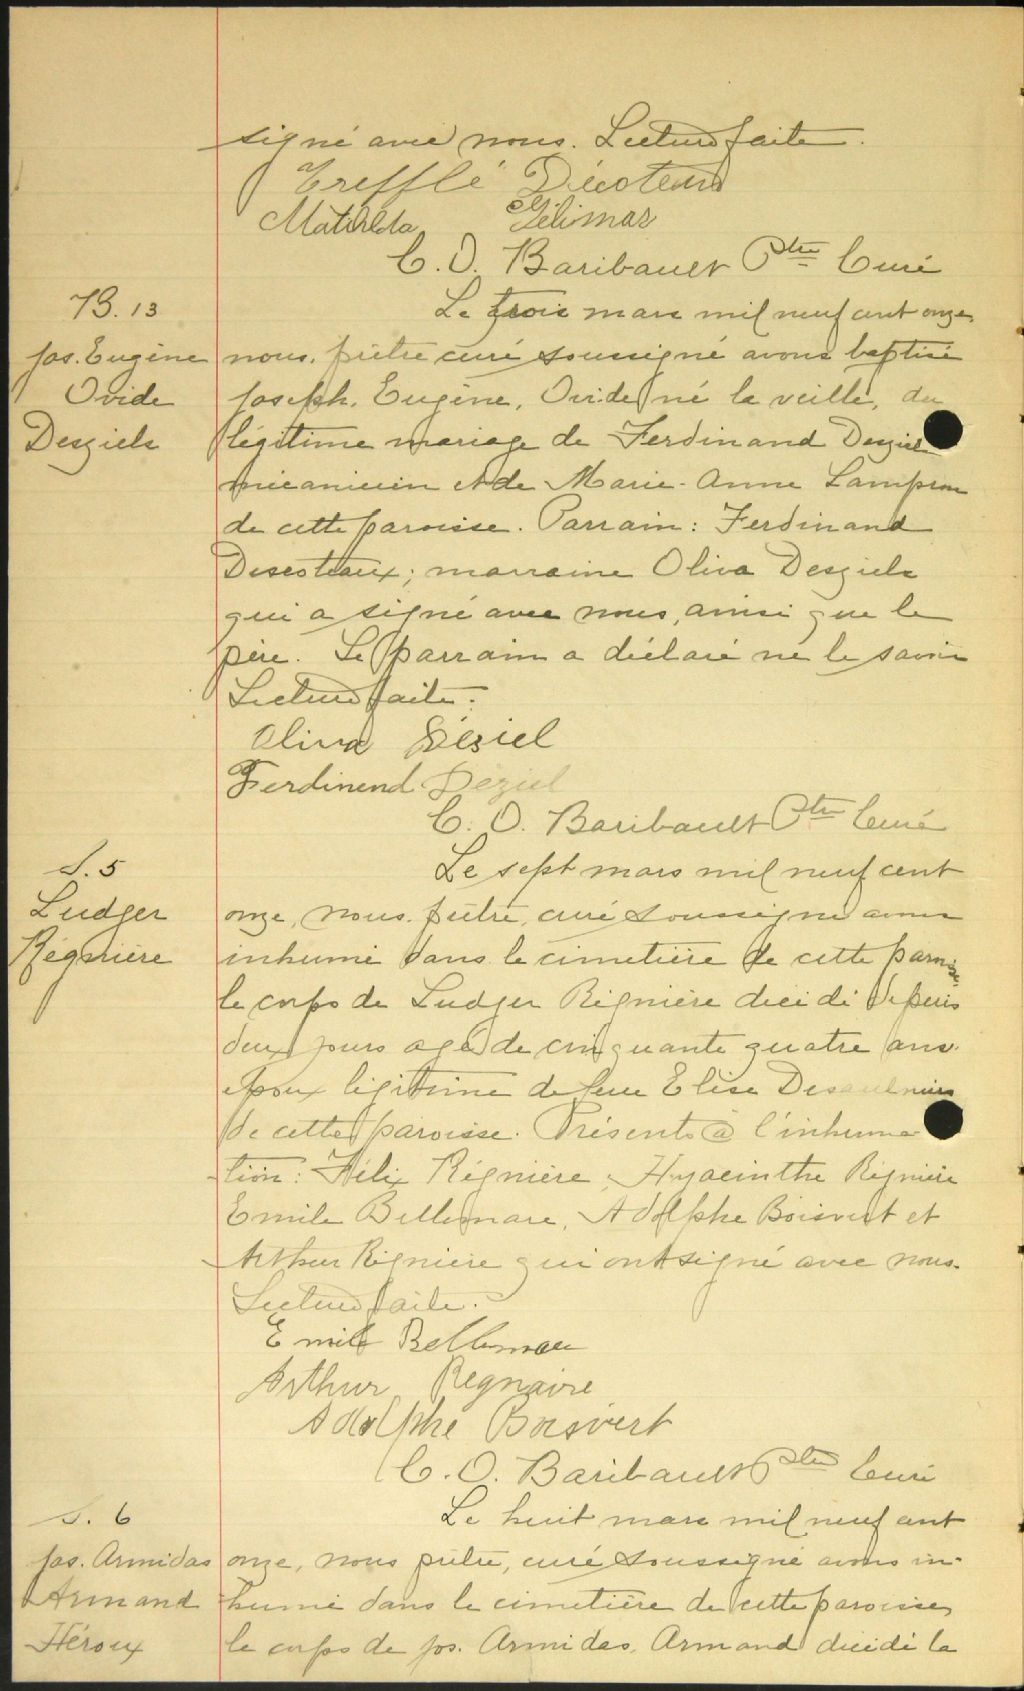 signé avec nous. Lecture faite.
Trefflé Décoteau
Matilda Gélimas
C. O. Baribault Ptre Curé
B. 13
Jos. Eugène
Ovide
Desziels
Le trois mars mil neuf cent onze,
nous, prêtre curé soussigné avons baptisé
Joseph, Eugène, Ovide né la veille, du
légitime mariage de Ferdinand Desziels
mécanicien et de Marie-Anne Lampron
de cette paroisse. Parrain: Ferdinand
Descoteaux; marraine Oliva Desziels
qui a signé avec nous, ainsi que le
père. Le parrain a déclaré ne le savoir
Lecture faite.
Oliva Déziel
Ferdinend Déziel
C. O. Baribault Ptre Curé
S. 5
Ludger
Régnière
Le sept mars mil neuf cent
onze, nous, prêtre, curé soussigné avons
inhumé dans le cimetière de cette paroisse,
le corps de Ludger Régnière décédé depuis
deux jours agé de cinquante quatre ans
époux légitime de feue Elise Desaulniers
de cette paroisse. Présents à l'inhuma-
tion: Félix Régnière, Hyacinthe Régnière
Emile Bellemare, Adolphe Boisvert et
Arthur Régnière qui ont signé avec nous.
Lecture faite.
Emile Bellemare
Arthur Regnaire
Adolphe Boisvert
C. O. Baribault Ptre Curé
S. 6
Jos. Armidas
Armand
Héroux
Le huit mars mil neuf cent
onze, nous prêtre, curé soussigné avons in-
humé dans le cimetière de cette paroisse,
le corps de Jos. Armidas, Armand décédé la